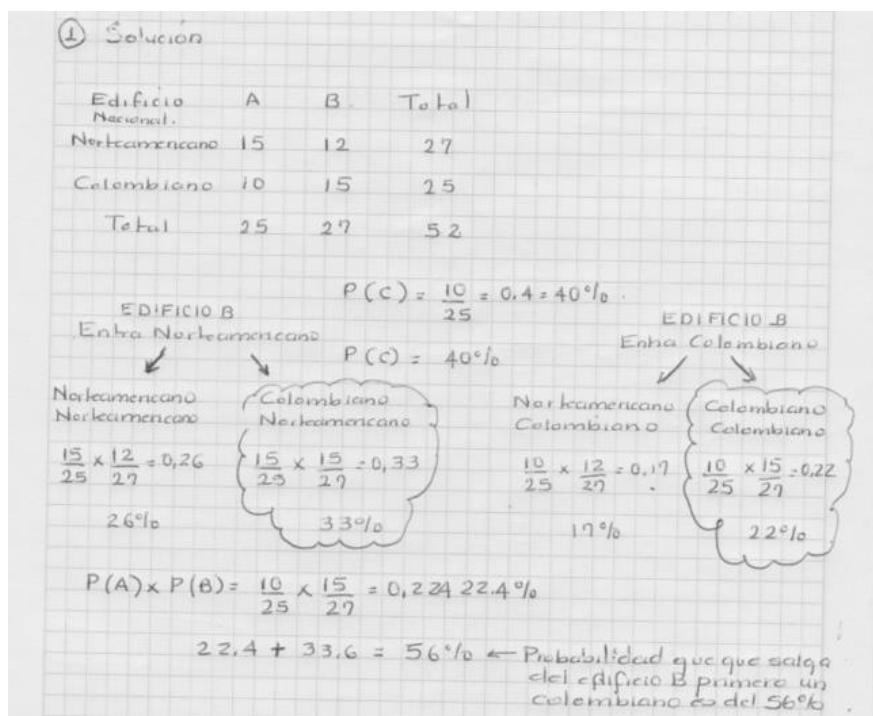 ① Solución
Edificio A B Total
Nacional.
Norteamericano 15 12 27
Colombiano 10 15 25
Total 25 27 52
P(C) = 10/25 = 0.4 = 40%.
EDIFICIO B
Entra Norteamericano
P(C) = 40%
EDIFICIO B
Entra Colombiano
Norteamericano
Norteamericano
15/25 x 12/27 = 0,26
26%
Colombiano
Norteamericano
15/25 x 15/27 = 0,33
33%
Norteamericano
Colombiano
10/25 x 12/27 = 0.17
17%
Colombiano
Colombiano
10/25 x 15/27 = 0.22
22%
P(A) x P(B) = 10/25 x 15/27 = 0,224 22.4%
22.4 + 33.6 = 56% ← Probabilidad que que salga
del edificio B primero un
colombiano es del 56%.